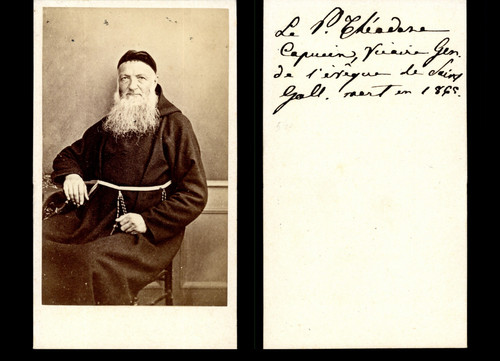 Le P. Théodose
Capucin, Vicaire Gen.
de l'évêque de Saint
Gall. mort en 1865.